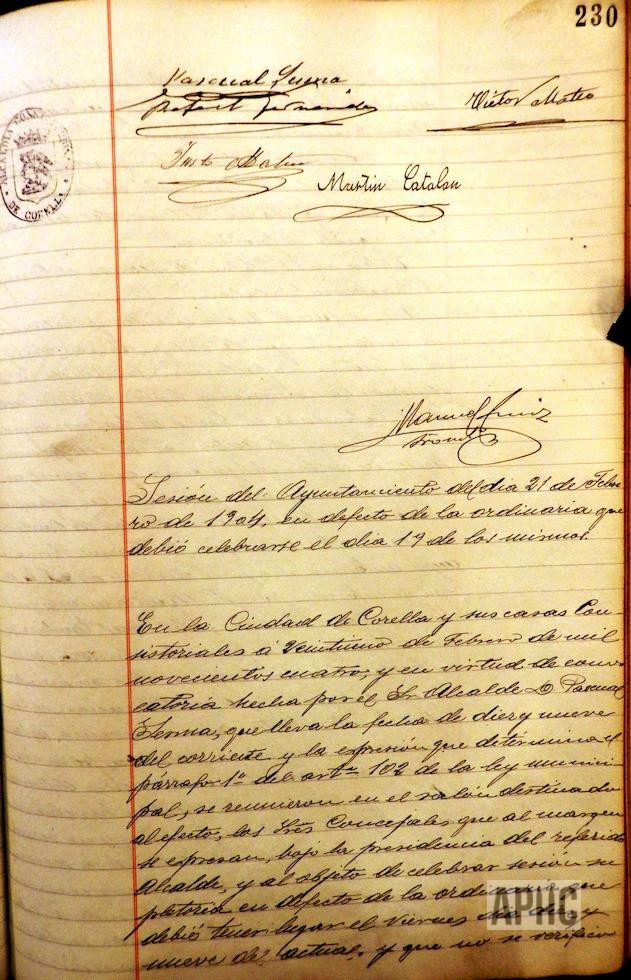 230
Pascual Serna
Víctor Mateo
Martín Catalan
Manuel
Sesión del Ayuntamiento del dia 21 de Febre
ro de 1904, en defecto de la ordinaria que
debió celebrarse el dia 19 de los mismos.
En la Ciudad de Corella y sus casas Con-
sistoriales á Veintiuno de Febrero de mil
novecientos cuatro, y en virtud de convo-
catoria hecha por el Sr Alcalde D. Pascual
Serna, que lleva la fecha de diez y nueve
del corriente y la expresión que determina el
párrafo 1º del artº 102 de la ley munici-
pal, se reunieron en el salón destinado
al efecto, los Sres Concejales que al margen
se expresan, bajo la presidencia del referido
Alcalde, y al objeto de celebrar sesión su-
pletoria en defecto de la ordinaria que
debió tener lugar el Viernes dia diez y
nueve del actual, y que no se verificó
DE CORELLA
APHC